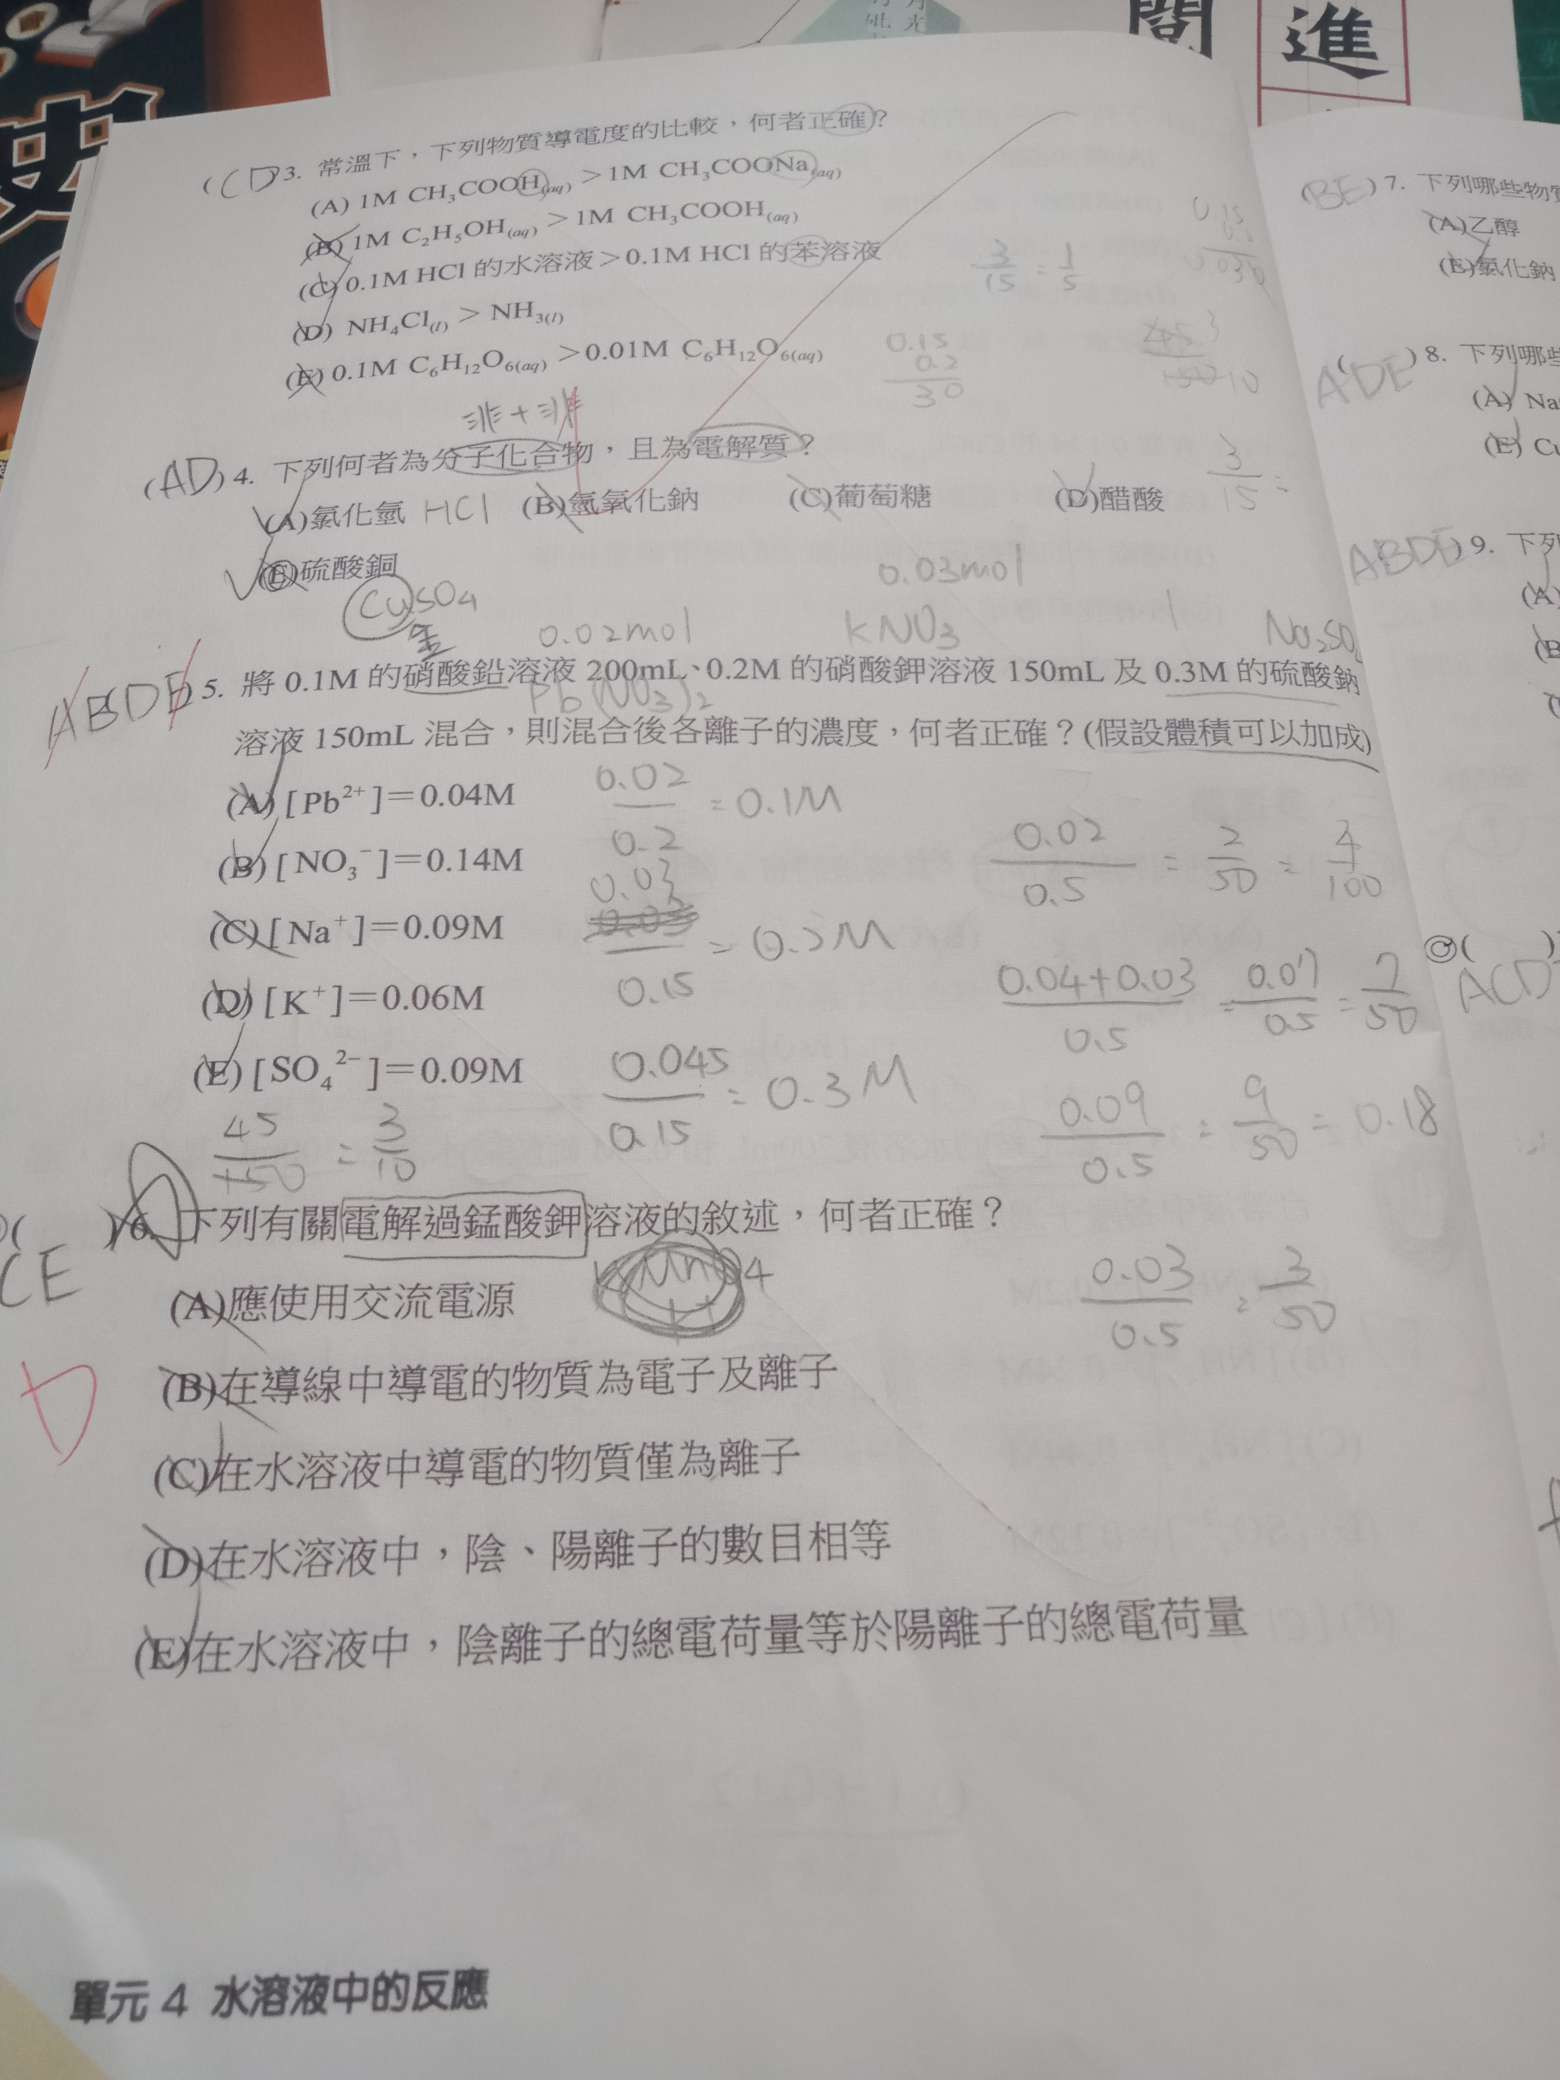 史
閱
進
(CD)3. 常溫下，下列物質導電度的比較，何者正確？
(A) 1M CH₃COOH(aq) > 1M CH₃COONa(aq)
(B) 1M C₂H₅OH(aq) > 1M CH₃COOH(aq)
(C) 0.1M HCl 的水溶液 > 0.1M HCl 的苯溶液
(D) NH₄Cl(l) > NH₃(l)
(E) 0.1M C₆H₁₂O₆(aq) > 0.01M C₆H₁₂O₆(aq)
3/15 = 1/5
0.15
0.2
30
非+非
(AD)4. 下列何者為分子化合物，且為電解質？
(A)氯化氫 HCl (B)氫氧化鈉 (C)葡萄糖 (D)醋酸
3/15 =
(E)硫酸銅
CuSO4
金
0.02mol
0.03mol
KNO3
Pb(NO3)2
ABDE 5. 將 0.1M 的硝酸鉛溶液 200mL、0.2M 的硝酸鉀溶液 150mL 及 0.3M 的硫酸鈉
溶液 150mL 混合，則混合後各離子的濃度，何者正確？(假設體積可以加成)
(A) [Pb²⁺]＝0.04M
0.02/0.2 = 0.1M
(B) [NO₃⁻]＝0.14M
0.02/0.5 = 2/50 = 4/100
(C) [Na⁺]＝0.09M
0.03/0.15 = 0.2M
(D) [K⁺]＝0.06M
0.04+0.03/0.5 = 0.07/0.5 = 7/50
(E) [SO₄²⁻]＝0.09M
0.045/0.15 = 0.3M
0.09/0.5 = 9/50 = 0.18
45/150 = 3/10
( )6. 下列有關電解過錳酸鉀溶液的敘述，何者正確？
CE
0.03/0.5 = 3/50
(A)應使用交流電源
(B)在導線中導電的物質為電子及離子
(C)在水溶液中導電的物質僅為離子
(D)在水溶液中，陰、陽離子的數目相等
(E)在水溶液中，陰離子的總電荷量等於陽離子的總電荷量
D
單元 4 水溶液中的反應
(BE)7. 下列哪些物質
(A)乙醇
(E)氯化鈉
ADE ( )8. 下列哪些
(A) Na
(E) C
ABDE 9. 下列
(A)
(B
( )
ACD